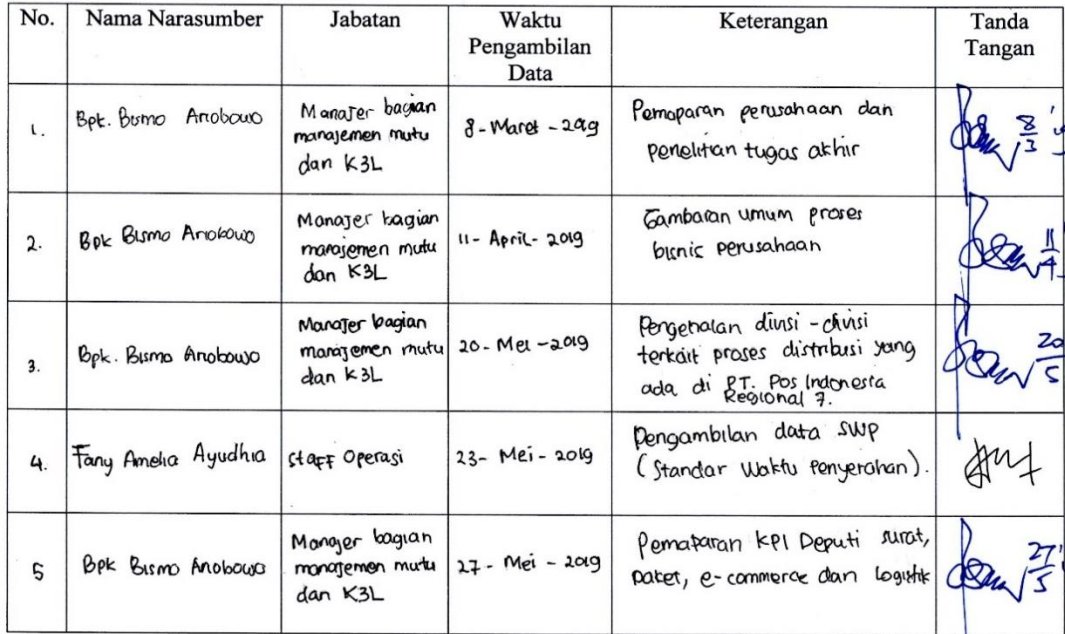 No. Nama Narasumber Jabatan Waktu Pengambilan Data Keterangan Tanda Tangan
1. Bpk. Bismo Ariobowo
Manajer bagian
manajemen mutu
dan K3L
8 - Maret - 2019
Pemaparan perusahaan dan
penelitian tugas akhir
8/3
2. Bpk Bismo Ariobowo
Manajer bagian
manajemen mutu
dan K3L
11 - April - 2019
Gambaran umum proses
bisnis perusahaan
11/4
3. Bpk. Bismo Ariobowo
Manajer bagian
manajemen mutu
dan K3L
20 - Mei - 2019
Pengenalan divisi - divisi
terkait proses distribusi yang
ada di PT. Pos Indonesia
Regional 7.
20/5
4. Fany Amelia Ayudhia
Staff Operasi
23 - Mei - 2019
Pengambilan data SWP
(Standar Waktu Penyerahan).
5 Bpk Bismo Ariobowo
Manajer bagian
manajemen mutu
dan K3L
27 - Mei - 2019
Pemaparan KPI Deputi surat,
paket, e-commerce dan logistik
27/5